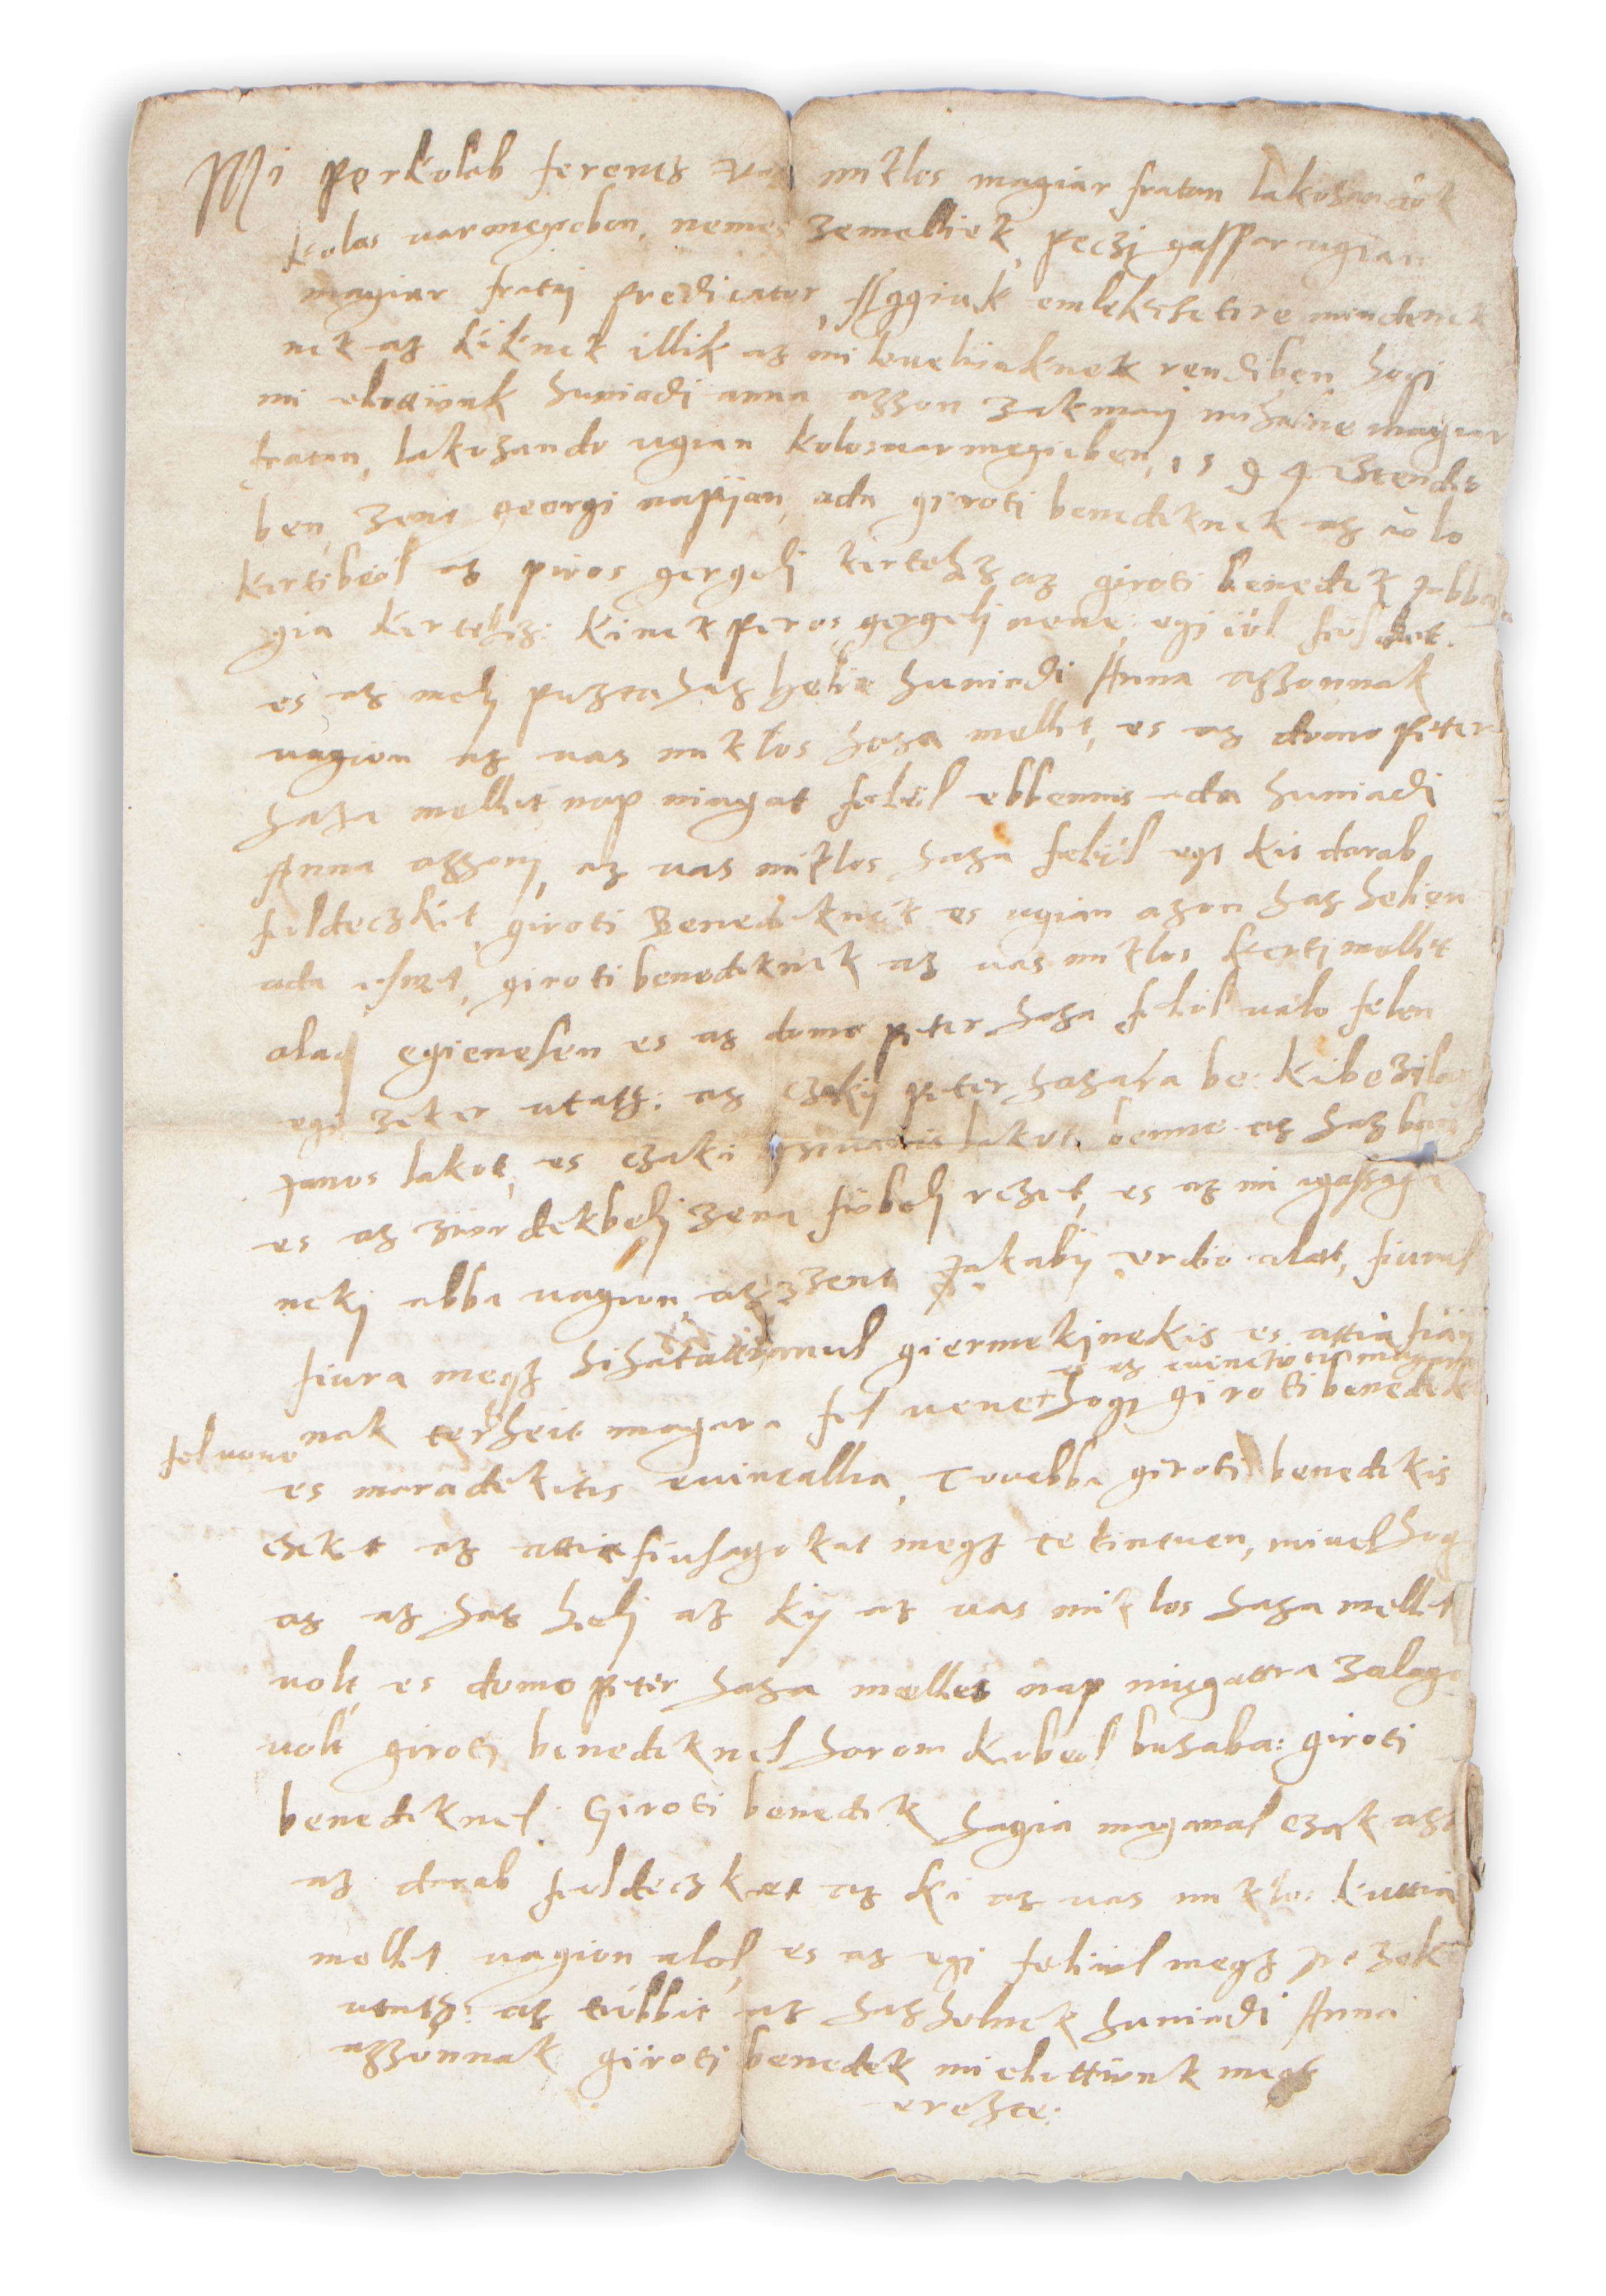 Mi perkolab ferencz vas miklos magiar fratan lakozandok
kolos varmegieben, nemes zemelliek, peczi gaspar ugian
magiar fratij predicator, Aggiuk emlekezetire mindenek
nek az kiknek illik az mi leveliünknek rendiben hogi
mi elottünk huniadi anna azzon zakmarj mihalne magiar
fratan, lakozando ugian kolosvarmegieben, 1594 eztendo
ben, zent georgi napijan, ada giroti benedeknek az ü lo
kertibeol az piros gergelj kertehez az giroti benedek
gia kertehez: kinek piros gergelj neve: egi öl feoldet.
es az melj puzta haz helie huniadi Anna azzonnak
vagion az vas miklos haza mellet, es az domo peter
haza mellet nap niugat felül ebbennis ada huniadi
Anna azzonj, az vas miklos haza felül egi kis darab
feldeczket, giroti Benedeknek es ugian azon haz helien
ada ismet, giroti benedeknek az vas miklos kertj mellet
alaj egienesen es az domo peter haza felöl valo felen
egi zeker utatt: az czakij peter hazara be: kibe zila
Janos lakot, es czaki lakot benne az haz
es az zuordekbelj zena füбelj rezet, es az mi igassaga
nekj abba vagion, az zent Jakabij erdio alatt, fiurul
fiura megh hihatatlanul giermekjnekis es attia fiaj
es az evinctiot is magara
nak terheit magara fel vene hogi giroti benedeket
fel vevo
es maradekitis evincallia, Tovebba giroti benedekis
ezeket az attiafiusagokat megh tekintven, mivel hog
az az haz helj az kij az vas miklos haza mellet
volt es domo peter haza mellet nap niugattra zaloga
volt giroti benedeknel harom kebeol buzaba: giroti
benedeknel. Giroti benedek hagia maganal czak azt
az darab feoldeczket az ki az vas miklos kuttia
mellet vagion alol, es az egi felüiül megh zek
utatt: az többit az haz helnek huniadi Anna
azzonnak giroti benedek mi elottünk meg
erezte: